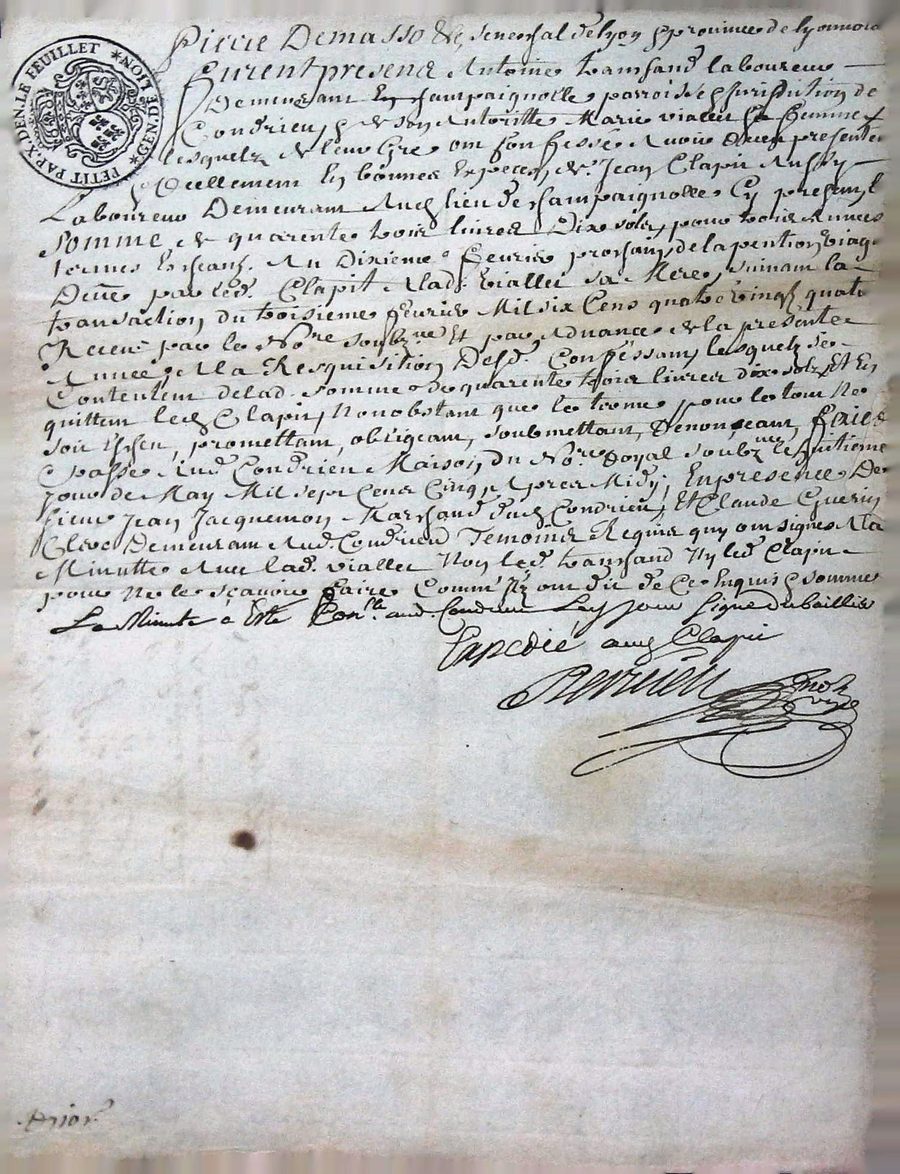 GEN. DE LION * PETIT PAP. X. DEN. LE FEUILLET *
Pierre Demasso &c senechal de lyon & province de lyonnois
Furent presens Antoine tranchand laboureur
Demeurant En champaignolle parroisse & juridiction de
Condrieu, & de son Autoritté Marie viallet sa femme
lesquelz de leur gré ont confessé Avoir
Reellement En bonnes Especes, de Jean Clapit Aussy
Laboureur Demeurant Aud lieu de champaignolle Cy present, la
Somme de quarente trois livres Dix solz, pour trois Années
termes Escheans Au Dixieme fevrier prochain, de la pention viag
Deüe par led. Clapit Alad. viallet sa Mere, suivant la
transaction du troisieme fevrier Mil six Cens quatre vingt quatre
Receue par le Nore soubzne Et par Advance de la presente
Année, A la Requisition Desd. Confessans, lesquelz se
Contentent delad. somme de quarente trois livres dix solz, Et En
quittent led Clapit, Nonobstant que le terme pour le tout Ne
soit Escheu, promettant, obligeant, soubmettant, Renonceant, faict
& passé Aud. Condrieu Maison du Nore Royal soubzne le huitieme
Jour de May Mil sept Cens Cinq, Apres Midy, En presence De
sieur Jean Jacquemon Marchand dud Condrieu, Et Claude Guerin
Clerc Demeurant Aud. Condrieu Temoins Requis quy ont signé A la
Minutte Avec lad. viallet Non led. tranchand Ny led. Clapit
pour Ne le sçavoir faire Comm'ilz ont dit de Ce Enquis & sommé
La Minutte a Esté Conlle aud. Condrieu Les Jour signé dubaillie
Expedié aud Clapit